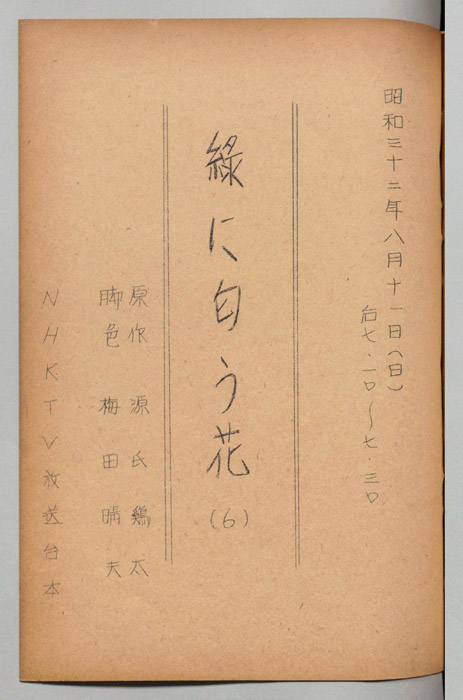 昭和三十二年八月十一日(日)
后七・一〇〜七・三〇
緑に匂う花
(6)
原作 源氏鶏太
脚色 梅田晴夫
NHKTV放送台本